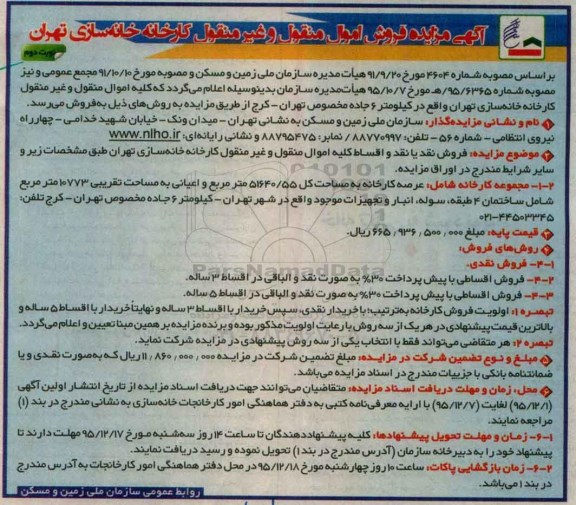 آگهی مزایده فروش اموال منقول و غیر منقول کارخانه خانه‌سازی تهران
نوبت دوم
بر اساس مصوبه شماره ۴۶۰۴ مورخ ۹۱/۹/۲۰ هیأت مدیره سازمان ملی زمین و مسکن و مصوبه مورخ ۹۱/۱۰/۱۰ مجمع عمومی و نیز
مصوبه شماره ۹۵/۶۳۶۵/هـ مورخ ۹۵/۱۰/۷ هیأت‌مدیره سازمان بدینوسیله اعلام می‌گردد که کلیه اموال منقول و غیر منقول
کارخانه خانه‌سازی تهران واقع در کیلومتر ۶ جاده مخصوص تهران - کرج از طریق مزایده به روش‌های ذیل به‌فروش می‌رسد.
۱ نام و نشانی مزایده‌گذار: سازمان ملی زمین و مسکن به نشانی تهران - میدان ونک - خیابان شهید خدامی - چهارراه
نیروی انتظامی - شماره ۵۶ - تلفن: ۸۸۷۷۰۹۹۷ / نمابر: ۸۸۷۹۵۴۷۵ و نشانی رایانه‌ای: www.nlho.ir
۲ موضوع مزایده: فروش نقد یا نقد و اقساط کلیه اموال منقول و غیر منقول کارخانه خانه‌سازی تهران طبق مشخصات زیر و
سایر شرایط مندرج در اوراق مزایده.
۱-۲- مجموعه کارخانه شامل: عرصه کارخانه به مساحت کل ۵۱۶۴۰/۵۵ متر مربع و اعیانی به مساحت تقریبی ۱۰۷۷۳ متر مربع
شامل ساختمان ۴ طبقه، سوله، انبار و تجهیزات موجود واقع در شهر تهران - کیلومتر ۶ جاده مخصوص تهران - کرج تلفن:
۰۲۱-۴۴۵۰۳۳۴۵
۳ قیمت پایه: مبلغ ۶۶۵٫۹۳۶٫۵۰۰٫۰۰۰ ریال.
۴ روش‌های فروش:
۱-۴- فروش نقدی.
۲-۴- فروش اقساطی با پیش پرداخت ۳۰% به صورت نقد و الباقی در اقساط ۳ ساله.
۳-۴- فروش اقساطی با پیش پرداخت ۳۰% به صورت نقد و الباقی در اقساط ۵ ساله.
تبصره ۱: اولویت فروش کارخانه به‌ترتیب؛ با خریدار نقدی، سپس خریدار با اقساط ۳ ساله و نهایتاً خریدار با اقساط ۵ ساله و
بالاترین قیمت پیشنهادی در هر یک از سه روش با رعایت اولویت مذکور بوده و برنده مزایده بر همین مبنا تعیین و اعلام می‌گردد.
تبصره ۲: هر متقاضی می‌تواند فقط با انتخاب یکی از سه روش پیشنهادی در مزایده شرکت نماید.
۵ مبلغ و نوع تضمین شرکت در مزایده: مبلغ تضمین شرکت در مزایده ۱۱٫۸۶۰٫۰۰۰٫۰۰۰ ریال که به‌صورت نقدی و یا
ضمانتنامه بانکی با جزییات مندرج در اسناد مزایده می‌باشد.
۶ محل، زمان و مهلت دریافت اسناد مزایده: متقاضیان می‌توانند جهت دریافت اسناد مزایده از تاریخ انتشار اولین آگهی
(۹۵/۱۲/۱) لغایت (۹۵/۱۲/۷) با ارایه معرفی‌نامه کتبی به دفتر هماهنگی امور کارخانجات خانه‌سازی به نشانی مندرج در بند (۱)
مراجعه نمایند.
۱-۶- زمان و مهلت تحویل پیشنهادها: کلیه پیشنهاددهندگان تا ساعت ۱۴ روز سه‌شنبه مورخ ۹۵/۱۲/۱۷ مهلت دارند تا
پیشنهاد خود را به دبیرخانه سازمان (آدرس مندرج در بند ۱) تحویل نموده و رسید دریافت نمایند.
۲-۶- زمان بازگشایی پاکات: ساعت ۱۰ روز چهارشنبه مورخ ۹۵/۱۲/۱۸ در محل دفتر هماهنگی امور کارخانجات به آدرس مندرج
در بند ۱ می‌باشد.
روابط عمومی سازمان ملی زمین و مسکن